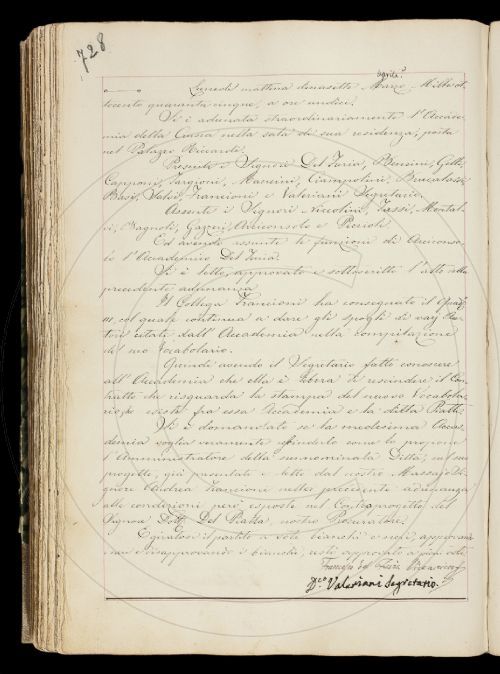 728
Lunedì mattina diciasette Marzo Milleot-
tocento quaranta cinque, a ore undici.
Si è adunata straordinariamente l'Accade-
mia della Crusca nella sala di sua residenza, posta
nel Palazzo Riccardi.
Presenti i Signori Del Furia, Bencini, Gelli,
Capponi, Targioni, Manzini, Ciampolini, Brucalassi,
Basi, Franscioni e Valeriani Segretario.
Assenti i Signori Niccolini, Tassi, Montal-
vi, Bagnoli, Gazzeri, Arciconsolo e
Ed avendo assunte le funzioni di Arciconso-
lo l'Accademico Del Furia.
Si è letto, approvato e sottoscritto l'atto della
precedente adunanza.
Il Collega Francioni ha consegnato il
col quale continua a dare gli spogli di varj Au-
tori citati dall'Accademia nella compilazione
del suo Vocabolario.
Quindi avendo il Segretario fatto conoscere
all'Accademia che ella è libera di rescindere il Con-
tratto che risguarda la stampa del nuovo Vocabola-
rio, e esiste fra essa Accademia e la ditta Piatti.
Si è domandato se la medesima Acca-
demia voglia veramente come le propone
l'Amministratore della sunnominata Ditta, col suo
progetto, già presentato e letto dal nostro Massajo Si-
gnore Andrea Francioni nella precedente adunanza
alle condizioni però esposte nel Controprogetto del
Signor Dott. Del Piatta, nostro Procuratore.
Egirato si il partito a voti bianchi e neri, approvan-
i neri e disapprovando i bianchi, restò approvato a pieni voti.
Francesco del Furia
D.co Valeriani Segretario.